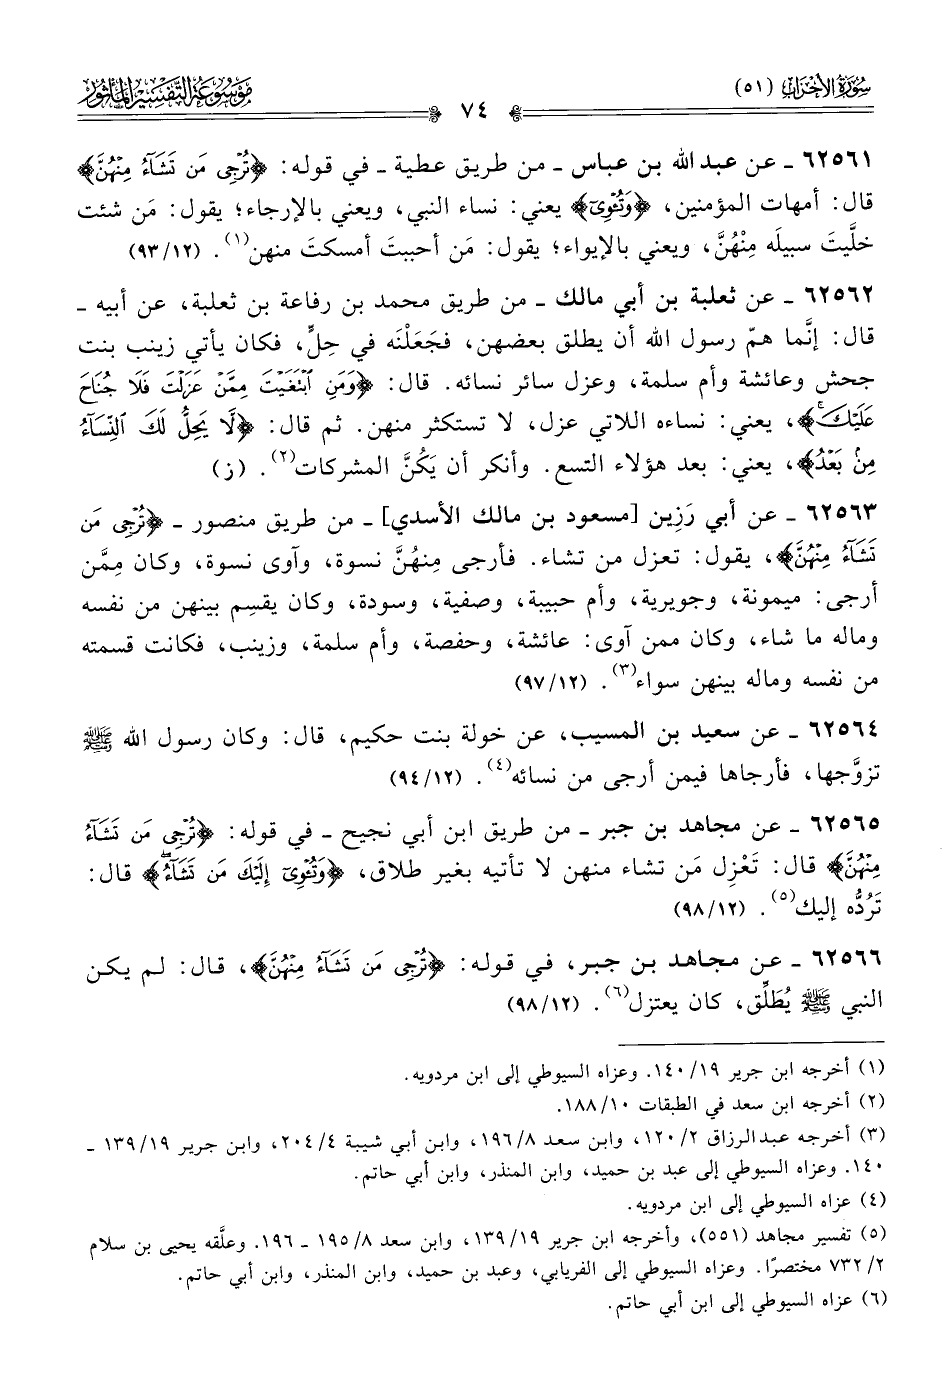 سورة الأحزاب (٥١)
٧٤
موسوعة التفسير المأثور
٦٢٥٦١ ـ عن عبد الله بن عباس ـ من طريق عطية ـ في قوله: ﴿تُرْجِى مَن تَشَآءُ مِنْهُنَّ﴾
قال: أمهات المؤمنين، ﴿وَتُـْٔوِىٓ﴾ يعني: نساء النبي، ويعني بالإرجاء؛ يقول: مَن شئت
خلَّيتَ سبيلَه مِنْهُنَّ، ويعني بالإيواء؛ يقول: مَن أحببتَ أمسكتَ منهن(١). (٩٣/١٢)
٦٢٥٦٢ ـ عن ثعلبة بن أبي مالك ـ من طريق محمد بن رفاعة بن ثعلبة، عن أبيه ـ
قال: إنَّما همّ رسول الله أن يطلق بعضهن، فجَعَلْنَه في حِلٍّ، فكان يأتي زينب بنت
جحش وعائشة وأم سلمة، وعزل سائر نسائه. قال: ﴿وَمَنِ ٱبْتَغَيْتَ مِمَّنْ عَزَلْتَ فَلَا جُنَاحَ
عَلَيْكَ﴾، يعني: نساءه اللاتي عزل، لا تستكثر منهن. ثم قال: ﴿لَّا يَحِلُّ لَكَ ٱلنِّسَآءُ
مِنۢ بَعْدُ﴾، يعني: بعد هؤلاء التسع. وأنكر أن يَكُنَّ المشركات(٢). (ز)
٦٢٥٦٣ ـ عن أبي رَزِين [مسعود بن مالك الأسدي] ـ من طريق منصور ـ ﴿تُرْجِى مَن
تَشَآءُ مِنْهُنَّ﴾، يقول: تعزل من تشاء. فأرجى مِنهُنَّ نسوة، وآوى نسوة، وكان مِمَّن
أرجى: ميمونة، وجويرية، وأم حبيبة، وصفية، وسودة، وكان يقسِم بينهن من نفسه
وماله ما شاء، وكان ممن آوى: عائشة، وحفصة، وأم سلمة، وزينب، فكانت قسمته
من نفسه وماله بينهن سواء(٣). (٩٧/١٢)
٦٢٥٦٤ ـ عن سعيد بن المسيب، عن خولة بنت حكيم، قال: وكان رسول الله ﷺ
تزوَّجها، فأرجاها فيمن أرجى من نسائه(٤). (٩٤/١٢)
٦٢٥٦٥ ـ عن مجاهد بن جبر ـ من طريق ابن أبي نجيح ـ في قوله: ﴿تُرْجِى مَن تَشَآءُ
مِنْهُنَّ﴾ قال: تَعْزِل مَن تشاء منهن لا تأتيه بغير طلاق، ﴿وَتُـْٔوِىٓ إِلَيْكَ مَن تَشَآءُ﴾ قال:
تَرُدُّه إليك(٥). (٩٨/١٢)
٦٢٥٦٦ ـ عن مجاهد بن جبر، في قوله: ﴿تُرْجِى مَن تَشَآءُ مِنْهُنَّ﴾، قال: لم يكن
النبي ﷺ يُطَلِّق، كان يعتزل(٦). (٩٨/١٢)
(١) أخرجه ابن جرير ١٤٠/١٩. وعزاه السيوطي إلى ابن مردويه.
(٢) أخرجه ابن سعد في الطبقات ١٨٨/١٠.
(٣) أخرجه عبدالرزاق ١٢٠/٢، وابن سعد ١٩٦/٨، وابن أبي شيبة ٢٠٤/٤، وابن جرير ١٣٩/١٩ ـ
١٤٠. وعزاه السيوطي إلى عبد بن حميد، وابن المنذر، وابن أبي حاتم.
(٤) عزاه السيوطي إلى ابن مردويه.
(٥) تفسير مجاهد (٥٥١)، وأخرجه ابن جرير ١٣٩/١٩، وابن سعد ١٩٥/٨ ـ ١٩٦. وعلَّقه يحيى بن سلام
٧٣٢/٢ مختصرًا. وعزاه السيوطي إلى الفريابي، وعبد بن حميد، وابن المنذر، وابن أبي حاتم.
(٦) عزاه السيوطي إلى ابن أبي حاتم.